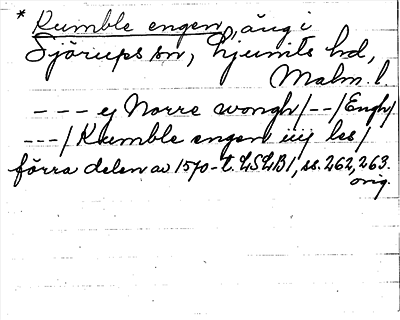 * Kumble engen, äng i
Sjörups sn, Ljunits hd,
Malm. l.
--- ej Norre wongh/--/Engh/
---/Kumble engen iiij les/
förra delen av 1570-t. LSLB1, ss. 262, 263.
orig.